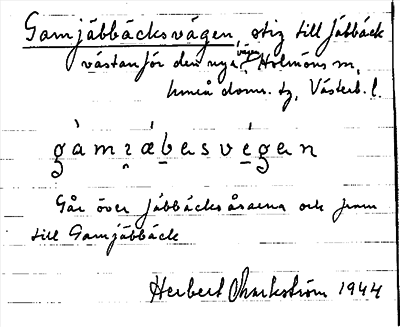 Gamjäbbäcksvägen, stig till Jäbbäck
västanför den nya vägen, Holmöns sn,
Umeå doms. tg, Västerb. l.
gàmɿæ̀basvégan
Går över Jäbbäcksåsarna och fram
till Gamjäbbäck
Herbert Markström 1944